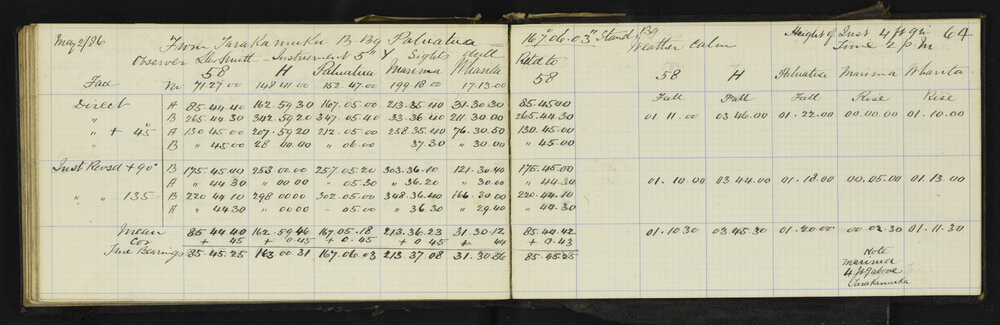 May 2/86 From Tarakamuku B. Bg Paluatua 167° 06' 03" Stand Bg Height of Inst 4 ft 9 in 64
Observer Instrument 5" Y Sights dull Weather Calm Time 2 p.m
58 H Paluatua Marima Wharita Rold to 58 58 H Paluatua Marima Wharita
Face Ver 71 27 00 148 41 00 152 47 00 199 18 00 17.13.00
Fall Fall Fall Rise Rise
Direct A 85.44.40 162.59.30 167.05.00 213.35.40 31.30.30 85.45.00
" B 265 44.30 342.59.20 347.05.40 33.36.40 211.30.00 265.44.30 01.11.00 03.46.00 01.22.00 00.00.00 01.10.00
" + 45° A 130 45.00 207.59.20 212.05.00 258.35.40 76.30.50 130.45.00
B " 45.00 28 00.00 " 06.00 37.30 " 30.00 " 45.00
Inst Revsd + 90° B 175.45.00 253.00.00 257.05.20 303.36.10 121.30.40 175.45.00
A " 44 30 " 00 00 " 05.30 " 36.20 " 30.00 " 44.30 01.10.00 03.44.00 01.18.00 00.05.00 01.13.00
" " 135 B 220 44.10 298 00 00 302.05.00 348.36.00 166.30.00 220.44.10
A " 44 30 " 00 00 " 05.00 " 36.30 " 29.40 " 44.30
Mean 85 44 40 162.59.46 167.05.18 213.36.23 31 30.12 85.44.42 01.10.30 03.45.30 01.20.00 00.02.30 01.11.30
Cor + 45 + 0.45 + 0.45 + 0.45 + 44 + 0.43
True Bearings 85.45.25 163 00.31 167.06.03 213.37.08 31.30.86 85.45.25
Note
Marima
4 ft above
Tarakamuka